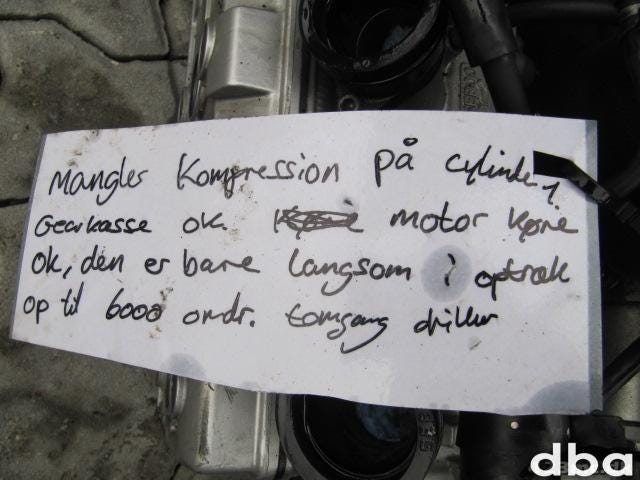 Mangler Kompression på cylinder 1
Gearkasse ok. motor køre
ok, den er bare langsom i optræk
op til 6000 omdr. tomgang driller
dba